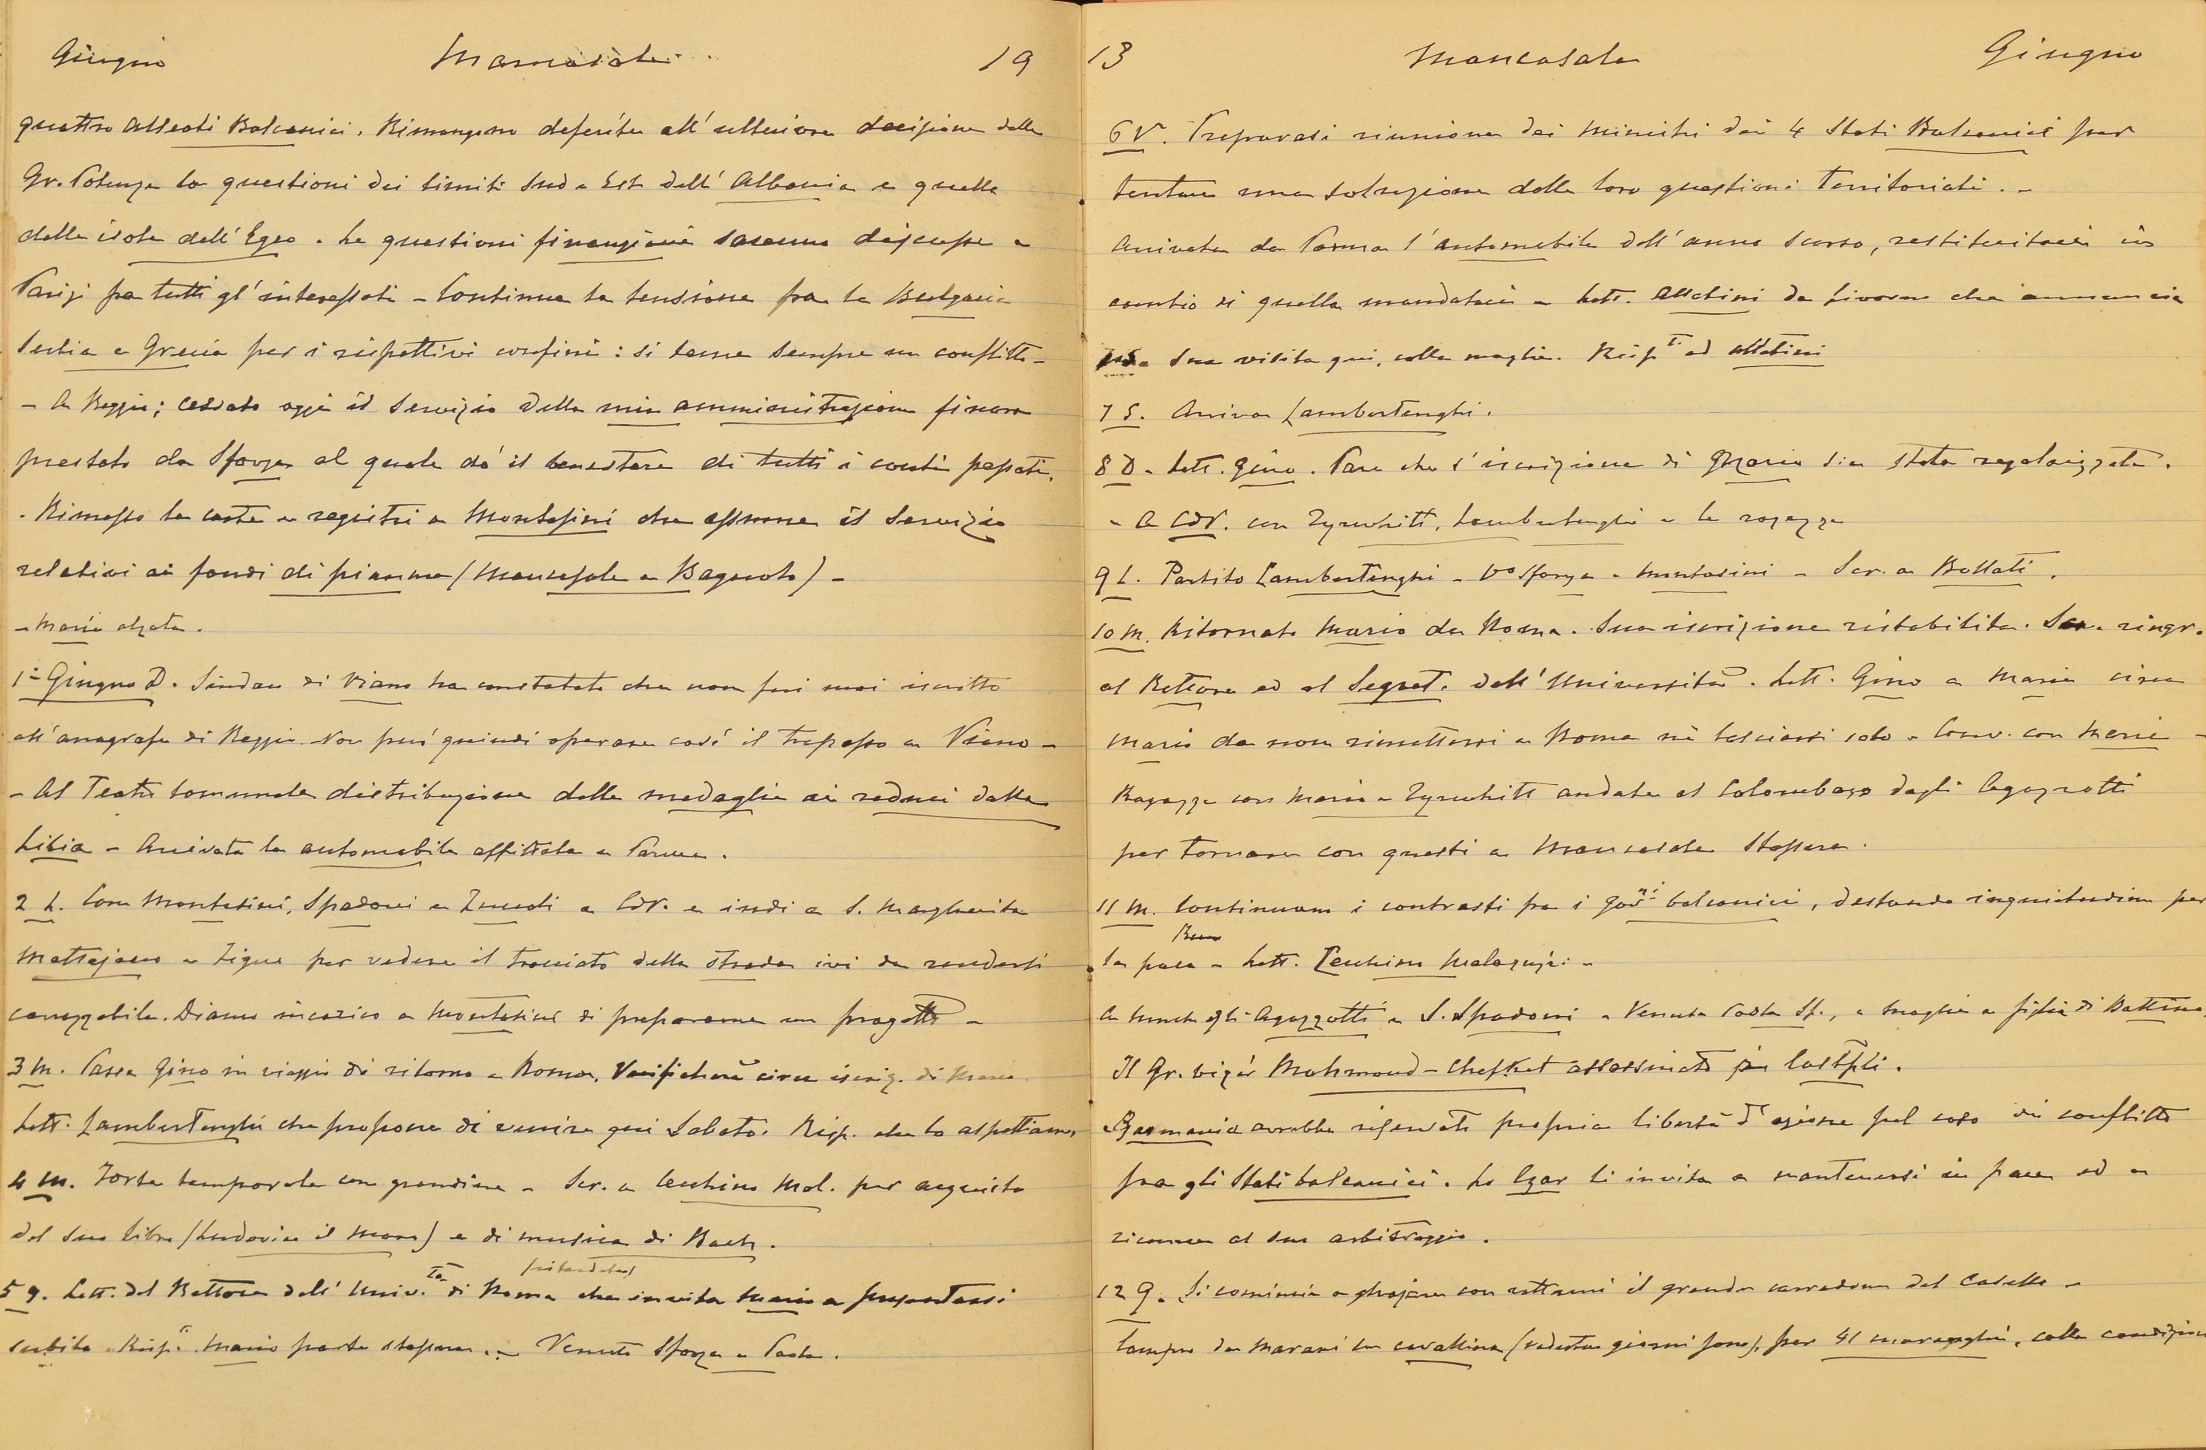 Giugno Mancasale 19
quattro alleati Balcanici. Rimangono deferite all'ulteriore decisione delle
Gr. Potenze le questioni dei limiti Sud e Est dell'Albania e quella
delle isole dell'Egeo. Le questioni finanziarie saranno discusse a
Parigi fra tutti gl'interessati - Continua la tensione fra la Bulgaria
Serbia e Grecia per i rispettivi confini: si teme sempre un conflitto -
- A Reggio; cessato oggi il servizio della mia amministrazione finora
prestato da Sforza al quale do' il benestare di tutti i conti passati.
- Rimesso le carte e registri a Montasini che assume il servizio
relativi ai fondi di pianura (Mancasale e Bagnolo) -
- Maria alzata.
1° Giugno D. Sindaco di Viano ha constatato che non fui mai iscritto
all'anagrafe di Reggio. Non può quindi operare così il trapasso a Viano -
- Al Teatro Comunale distribuzione delle medaglie ai reduci dalla
Libia - Arrivata la automobile affittata a Parma.
2 L. Con Montasini, Spadoni e a CdV. e indi a S. Margherita
Mattajano e per vedere il tracciato della strada ivi da rendersi
carrozzabile. Diamo incarico a Montasini di prepararne un progetto -
3 M. Passa Gino in viaggio di ritorno a Roma. Verificherà circa iscriz. di Mario.
Lett. Lambertenghi che propone di venire qui Sabato. Risp. che lo aspettiamo.
4 M. Forte temporale con grandine - Scr. a Cechino Mal. per acquisto
del suo libro (Ludovico il Moro) e di musica di Bach.
5 G. Lett. del Rettore dell'Univ.tà di Roma che invita Mario a presentarsi
subito. Risp. Mario parte stasera. - Venuti Sforza e Paola.
13 Mancasale Giugno
6 V. Preparasi riunione dei Ministri dei 4 Stati Balcanici per
tentare una soluzione delle loro questioni territoriali. -
Arrivata da Parma l'automobile dell'anno scorso, restituitaci in
cambio di quella mandataci - Lett. da Livorno che annuncia
sua visita qui, colla moglie. Risp. ad
7 S. Arriva Lambertenghi.
8 D. Lett. Gino. Pare che l'iscrizione di Mario sia stata regolarizzata.
- A CdV. con Tyrwhitt, Lambertenghi e le ragazze
9 L. Partito Lambertenghi - Sforza - Montasini - Scr. a Ballati.
10 M. Ritornato Mario da Roma. Sua iscrizione ristabilita. Scr. ringr.
al Rettore ed al Segret. dell'Università. Lett. Gino a Maria circa
Mario da non rimettersi a Roma nè lasciarsi solo - Conv. con Maria -
Ragazze con Maria e Tyrwhitt andate al Colombaro dagli Agazzotti
per tornare con questi a Mancasale stasera.
11 M. Continuano i contrasti fra i gov.ni balcanici, destando inquietudini per
la pace - Lett. Cechino Malaguzzi -
A lunch gli Agazzotti e S. Spadoni - Venuta Paola Sf., e moglie e figlia di Battino.
Il Gr. vizir Mahmoud-Chefket assassinato in Costpli.
Rumania avrebbe riservata propria libertà d'azione pel caso di conflitto
fra gli Stati balcanici. Lo Czar li invita a mantenersi in pace ed a
ricorrere al suo arbitraggio.
12 G. Si comincia a ghiajare con rottami il grande carradone del Casello -
Compro da Marani la cavallina (vedutas giorni sono), per 41 marenghi, colla condizione